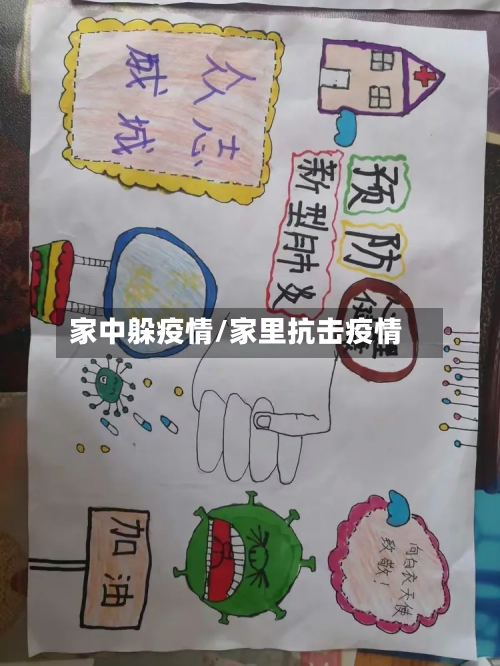 众志
成城
预防
新型肺炎
家中躲疫情/家里抗击疫情
加油
向白衣天使
致敬!